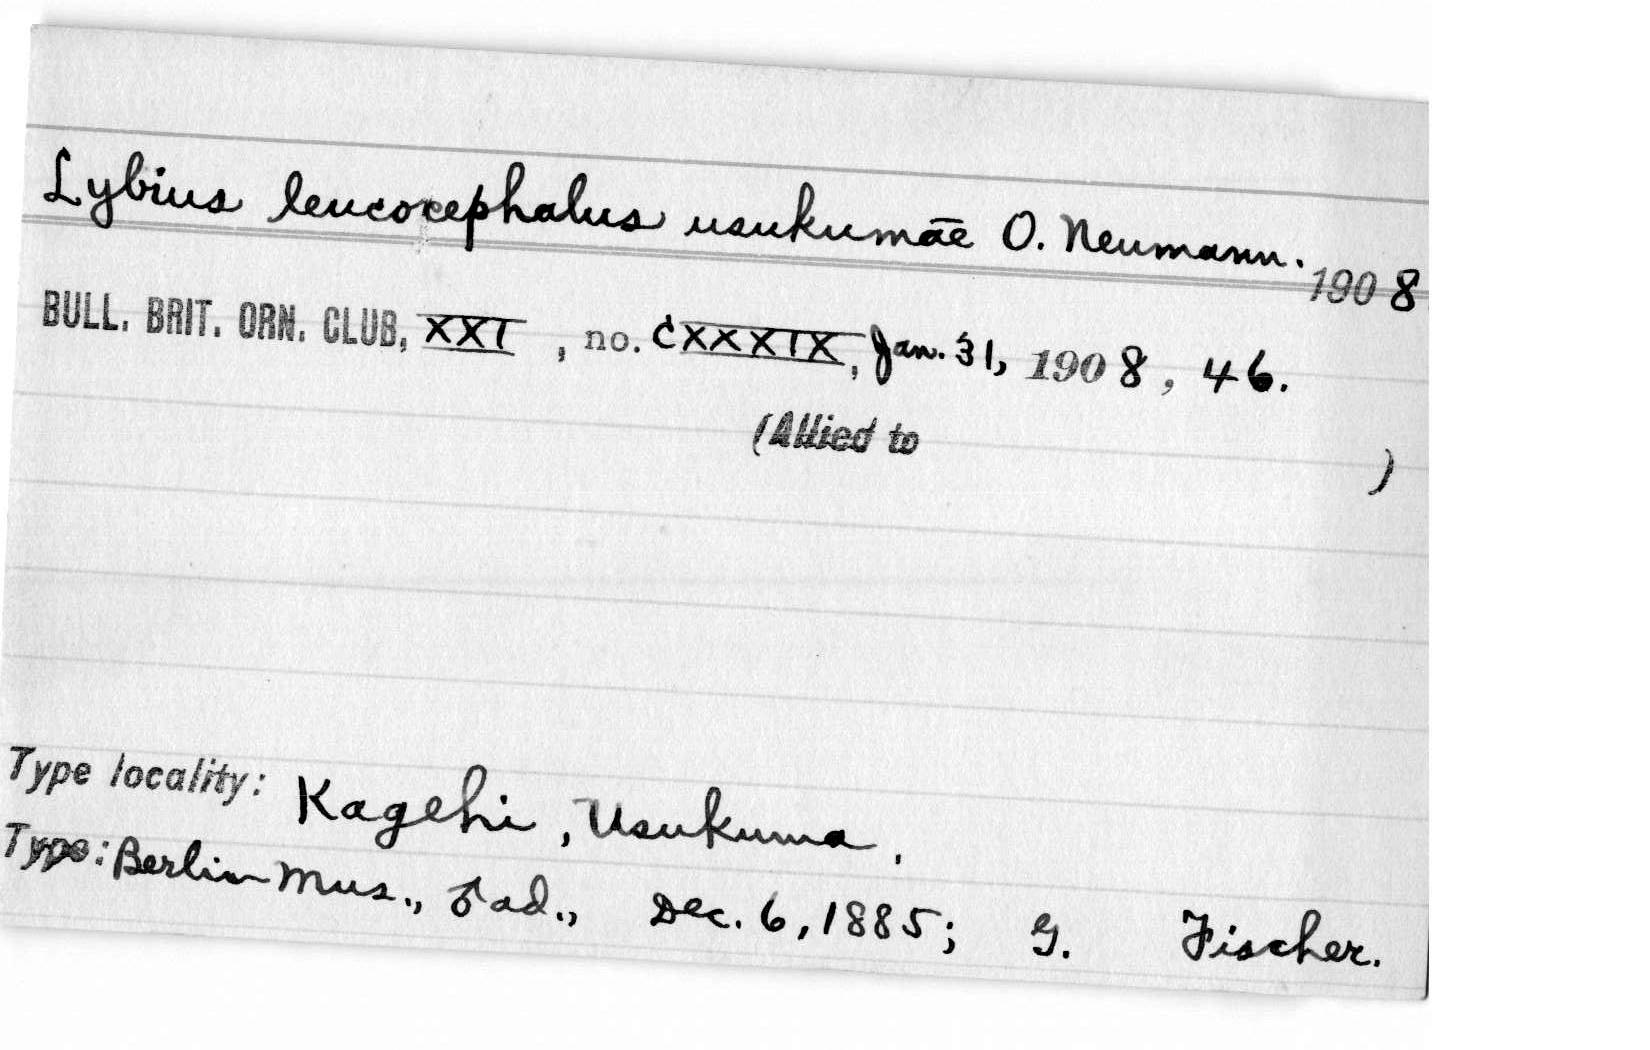 Lybius leucocephalus usukumae O. Neumann. 1908
BULL. BRIT. ORN. CLUB, XXI, no. CXXXIX, Jan. 31, 1908, 46.
(Allied to )
Type locality: Kagehi, Usukuma.
Type: Berlin Mus., ♂ ad., Dec. 6, 1885; G. Fischer.